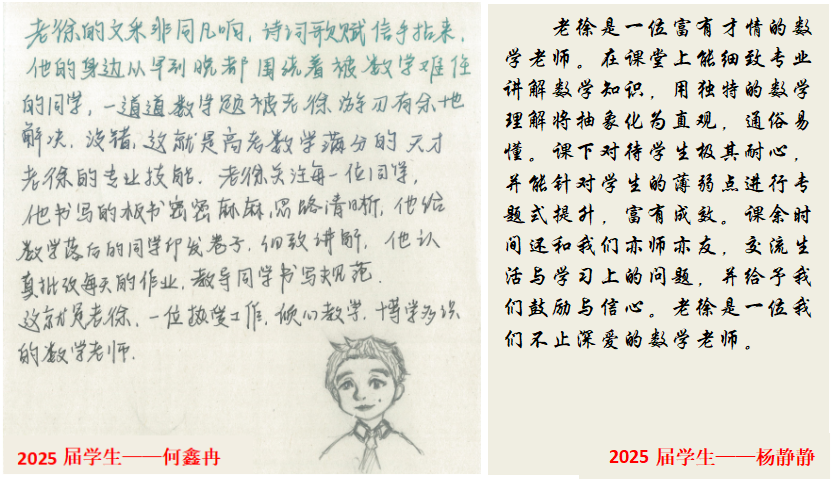 老徐的文采非同凡响，诗词歌赋信手拈来，
他的身边从早到晚都围绕着被数学难住
的同学，一道道数学题被老徐游刃有余地
解决，没错，这就是高考数学满分的天才
老徐的专业技能．老徐关注每一位同学，
他书写的板书密密麻麻，思路清晰，他给
数学落后的同学印发卷子，细致讲解，他认
真批改每天的作业，教导同学书写规范．
这就是老徐，一位热爱工作，倾心教学，博学多识
的数学老师．
2025 届学生——何鑫冉
老徐是一位富有才情的数
学老师。在课堂上能细致专业
讲解数学知识，用独特的数学
理解将抽象化为直观，通俗易
懂。课下对待学生极其耐心，
并能针对学生的薄弱点进行专
题式提升，富有成效。课余时
间还和我们亦师亦友，交流生
活与学习上的问题，并给予我
们鼓励与信心。老徐是一位我
们不止深爱的数学老师。
2025 届学生——杨静静